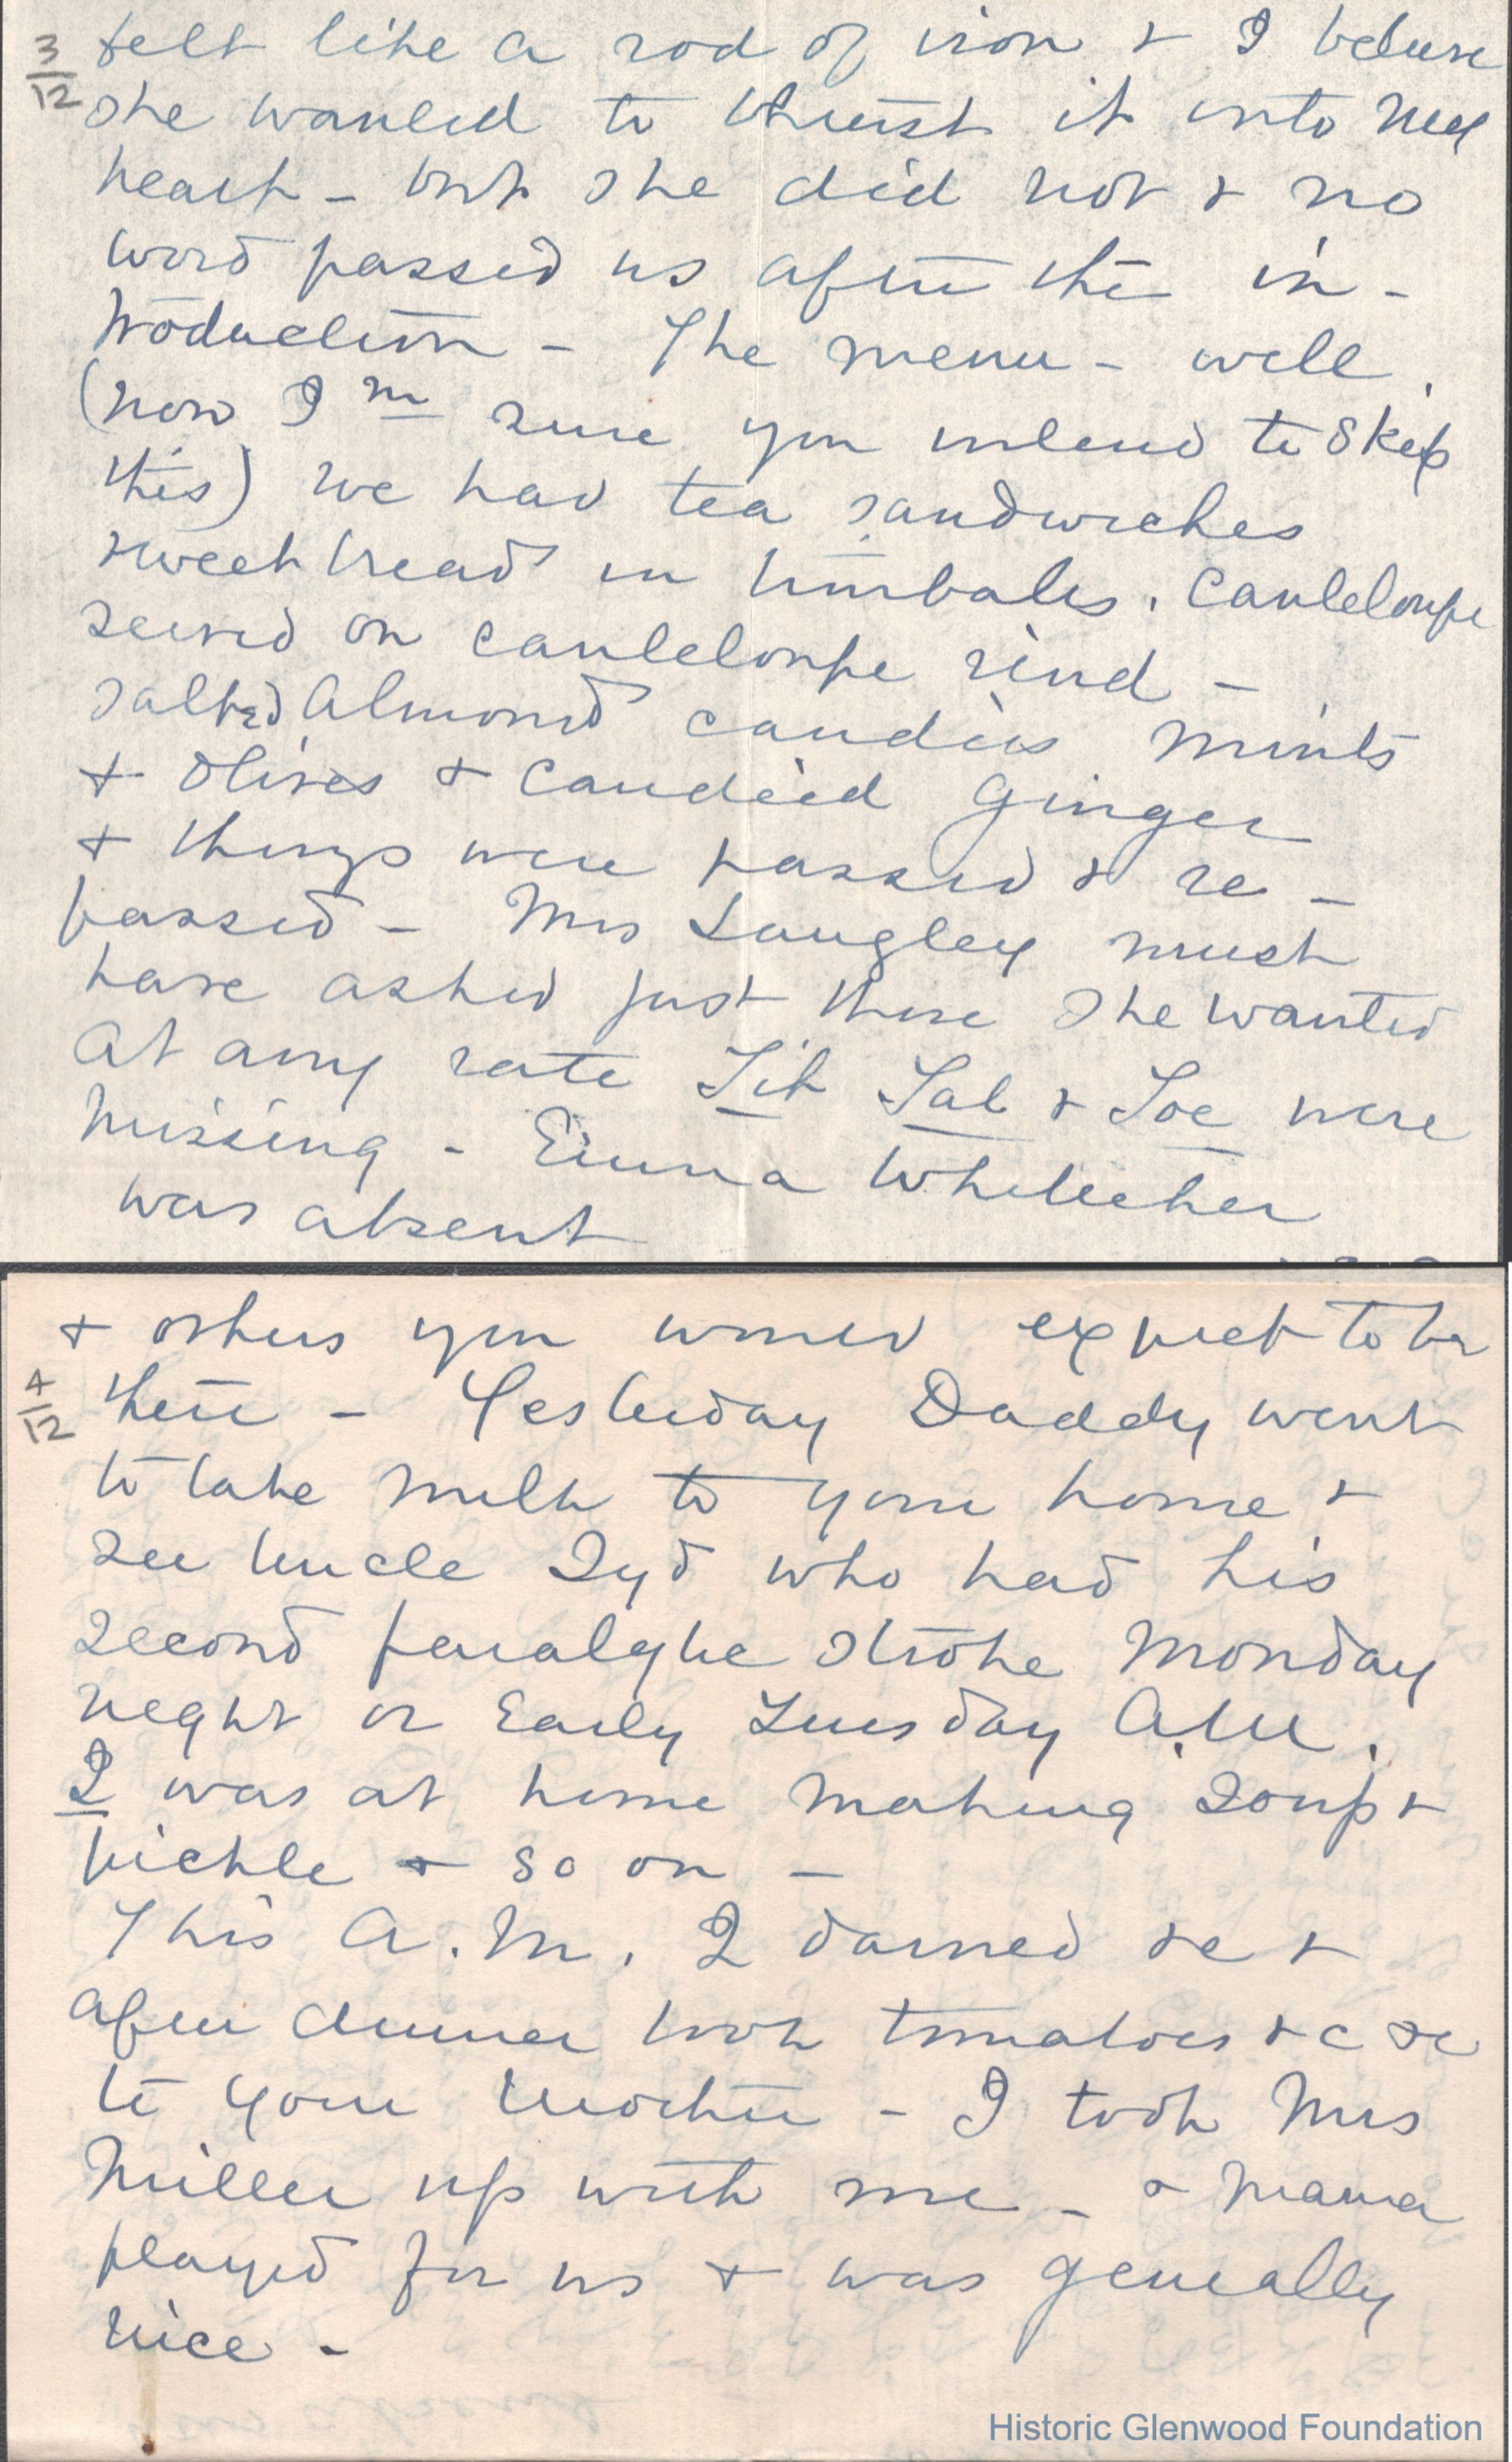 3/12
felt like a rod of iron + I believe
she wanted to thrust it into my
heart - but she did not + no
word passed us after the in -
troduction - The menu - well.
(now I m sure you intend to skip
this) we had tea sandwiches
sweet bread in timbales. Canteloupe
served on canteloupe rind -
salted almond candies mints
+ olives + candied ginger
+ things were passed + re -
passed - Mrs Langley must
have asked just those she wanted
At any rate Tit Tat + Toe were
missing - Emma Whiteher
was absent
+ others you would expect to be
4/12
there - Yesterday Daddy went
to take milk to your home +
see Uncle Syd who had his
second paralytic stroke Monday
night or Early Tuesday A.M.
I was at home making soup +
pickle + so on -
This A.M. I darned &c +
after dinner took tomatoes &c &c
to your mother - I took Mrs
Miller up with me - & Mama
played for us + was generally
nice -
Historic Glenwood Foundation